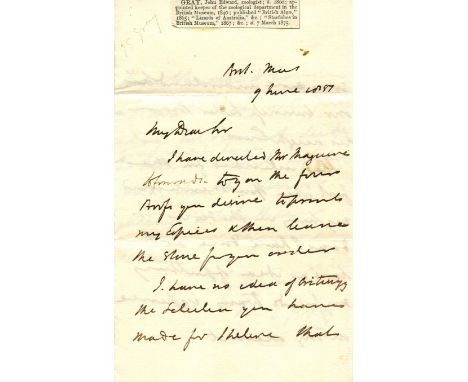 GRAY, John Edward, zoologist; b. 1800; ap-
pointed keeper of the zoological department in the
British Museum, 1840; published "British Algæ,"
1865; "Lizards of Australia," &c.; "Starfishes in
British Museum," 1867; &c.; d. 7 March 1875.
Brit. Mus
9 June 1857
My Dear Sir
I have directed Mr Maguire
to you the four
you desire to
my Copies & then leave
the Stone for your order
I have no idea of
the Selection you have
made for I believe that